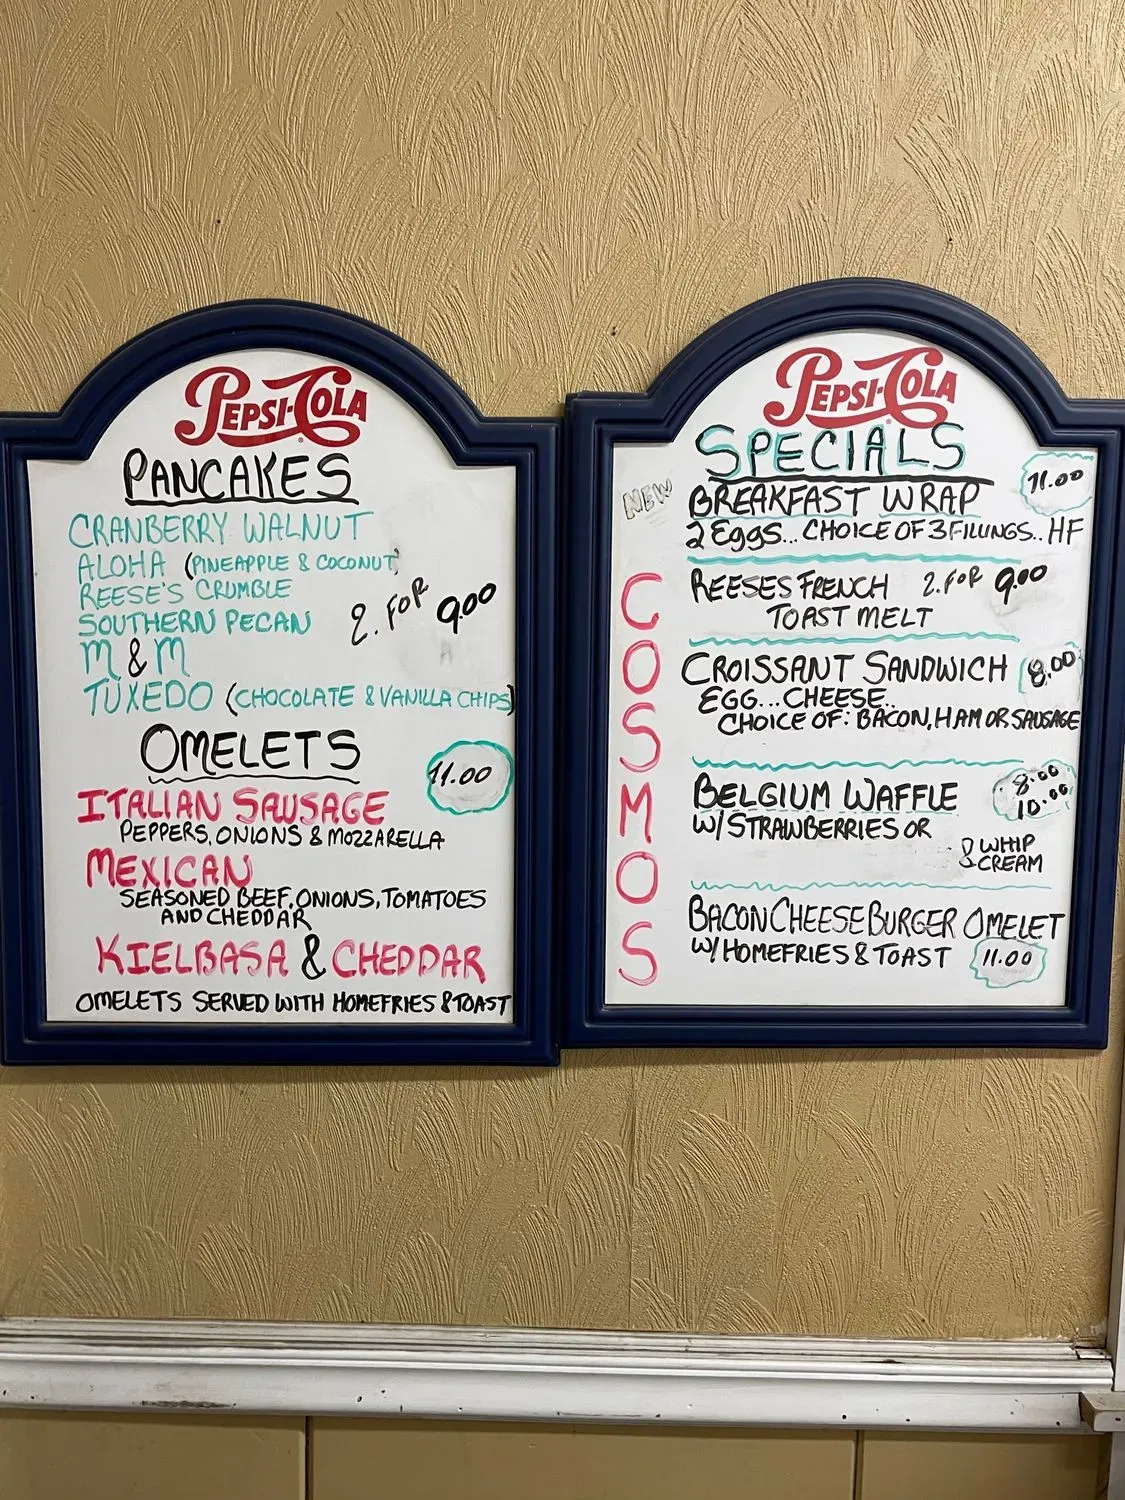 PEPSI-COLA
PANCAKES
CRANBERRY WALNUT
ALOHA (PINEAPPLE & COCONUT)
REESE'S CRUMBLE
SOUTHERN PECAN
2. FOR 9.00
M & M
TUXEDO (CHOCOLATE & VANILLA CHIPS)
OMELETS
11.00
ITALIAN SAUSAGE
PEPPERS, ONIONS & MOZZARELLA
MEXICAN
SEASONED BEEF, ONIONS, TOMATOES
AND CHEDDAR
KIELBASA & CHEDDAR
OMELETS SERVED WITH HOMEFRIES & TOAST
PEPSI-COLA
SPECIALS
NEW BREAKFAST WRAP 11.00
2 Eggs... CHOICE OF 3 FILLINGS.. HF
COSMOS
REESES FRENCH 2. FOR 9.00
TOAST MELT
CROISSANT SANDWICH 8.00
EGG... CHEESE..
CHOICE OF: BACON, HAM OR SAUSAGE
BELGIUM WAFFLE 8.00
10.00
W/STRAWBERRIES OR
& WHIP
CREAM
BACON CHEESE BURGER OMELET
W/HOMEFRIES & TOAST 11.00